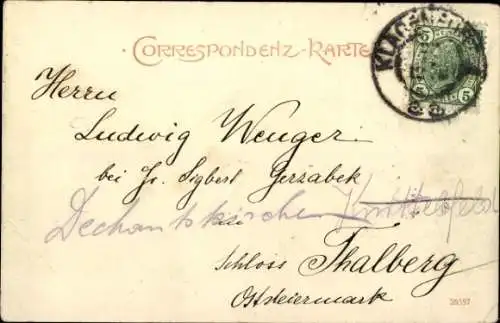 CORRESPONDENZ-KARTE
KLAGENFURT
5 5
Herrn
Ludwig Wenger
bei Hr. Sigbert Gerzabek
Dechantskirchen Knittelfeld
Schloss Thalberg
Oststeiermark